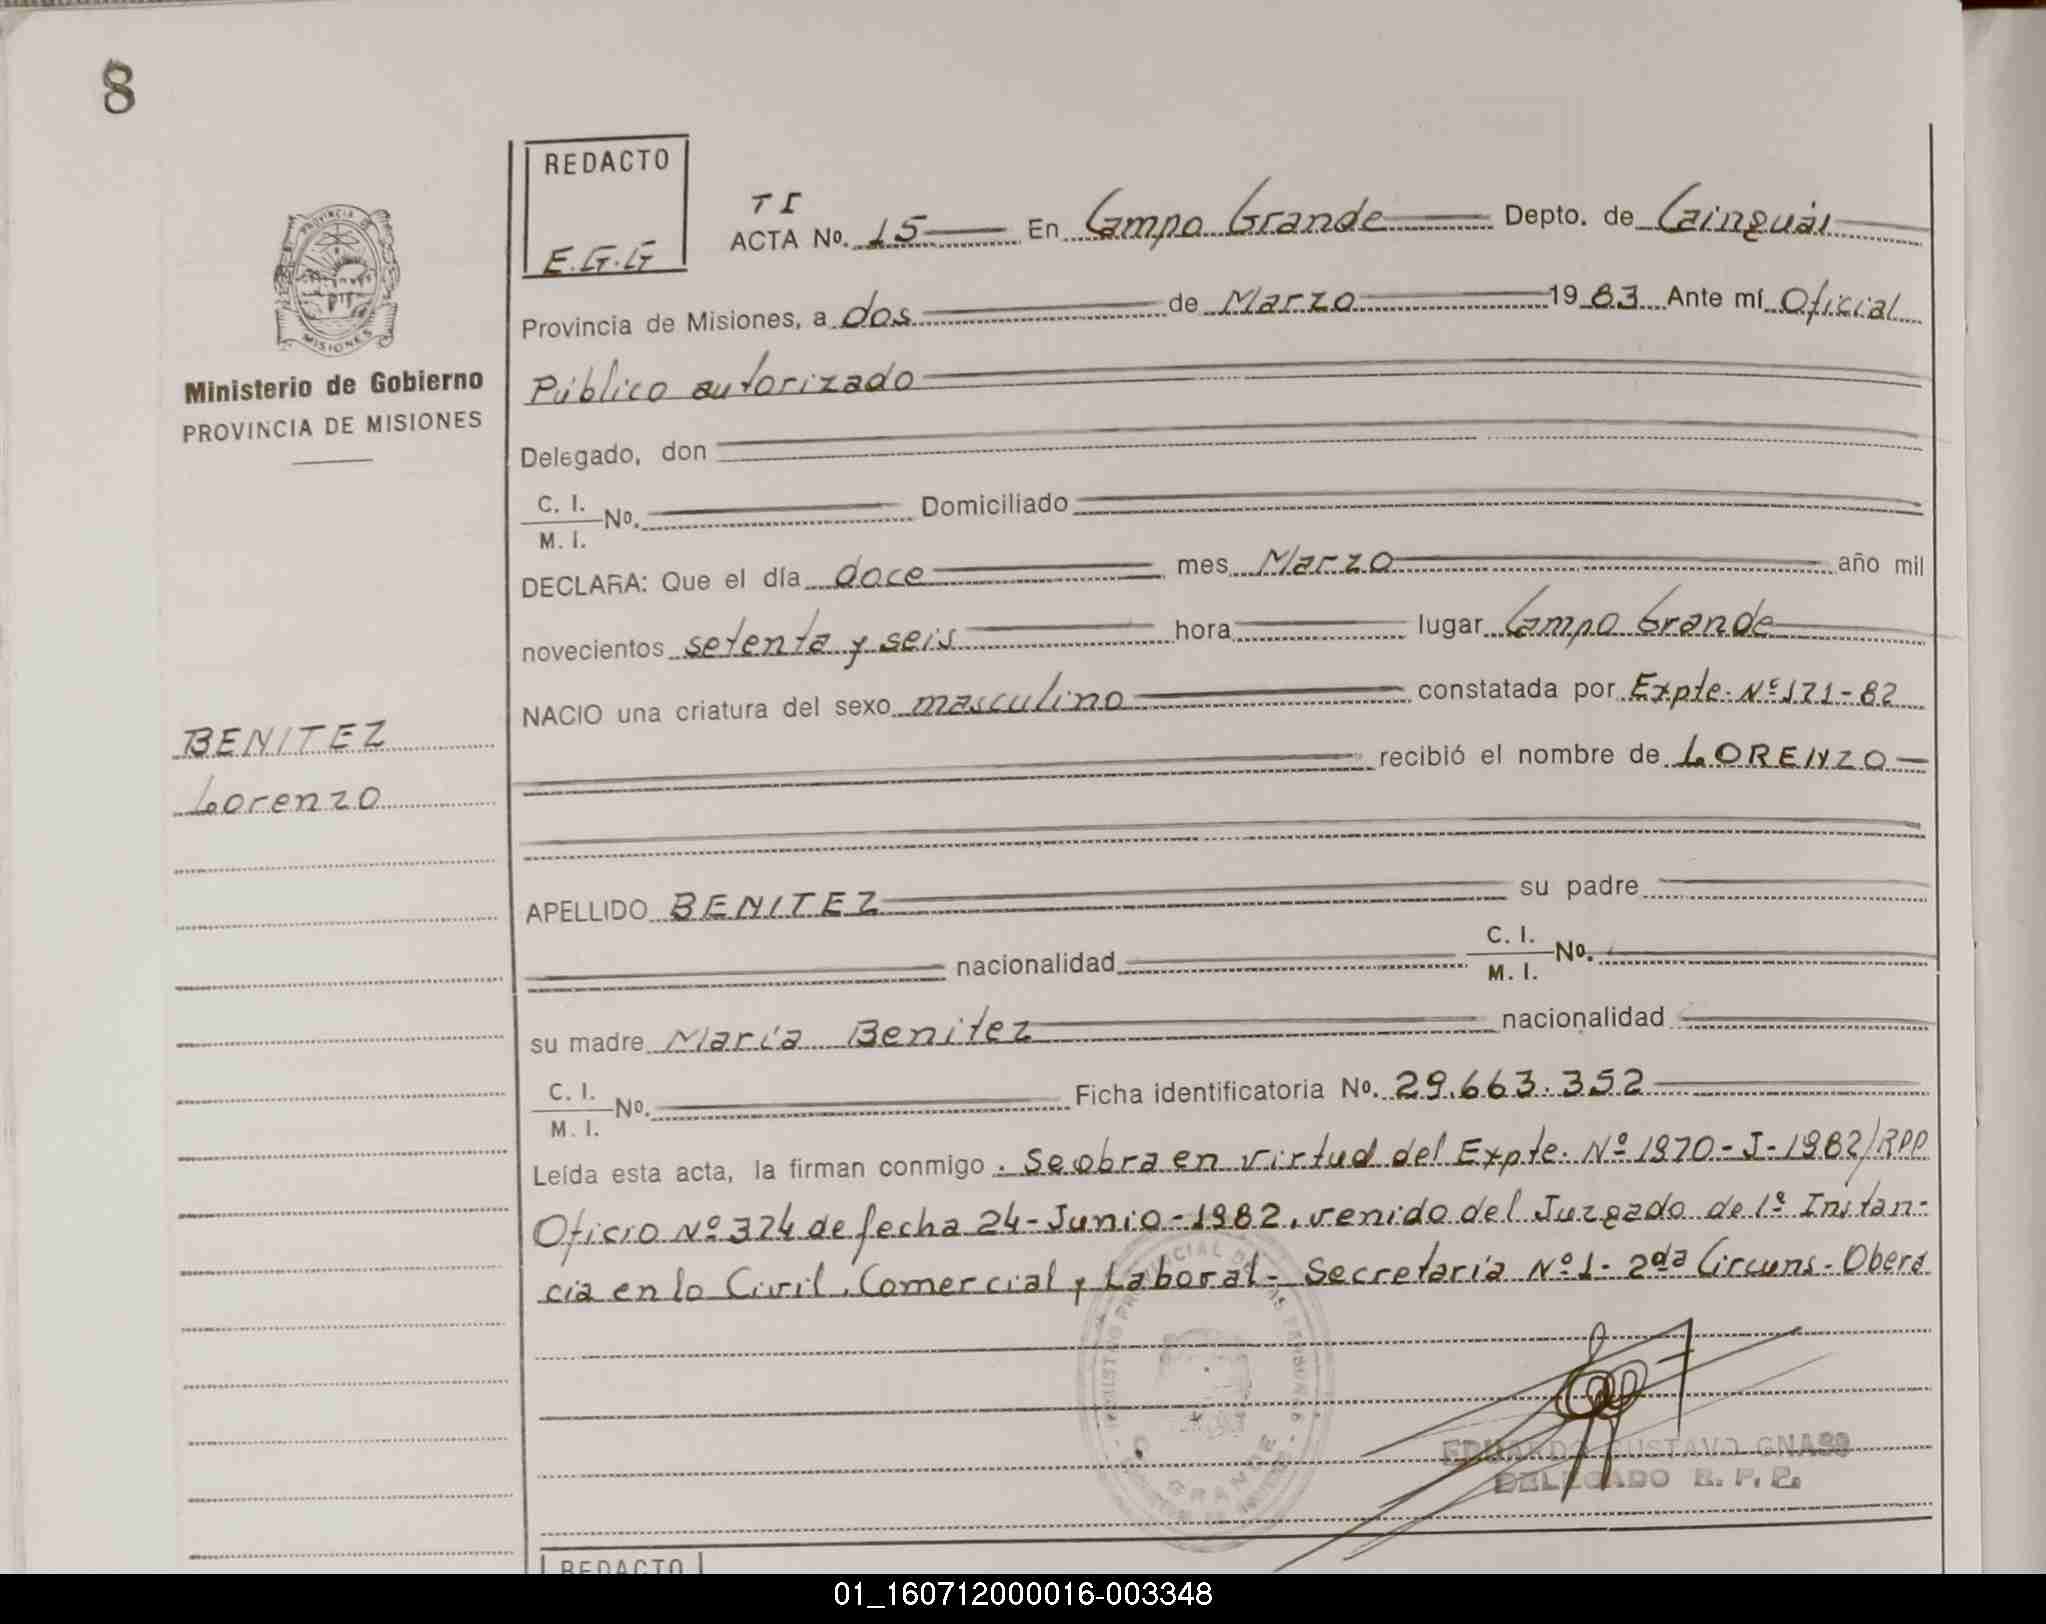 8
REDACTO
E.G.G
PROVINCIA DE
MISIONES
Ministerio de Gobierno
PROVINCIA DE MISIONES
BENITEZ
Lorenzo
T I
ACTA No. 15 En Campo Grande Depto. de Cainguás
Provincia de Misiones, a dos de Marzo 19 83 Ante mí Oficial
Público autorizado
Delegado, don
C. I. / M. I. No. Domiciliado
DECLARA: Que el día doce mes Marzo año mil
novecientos setenta y seis hora lugar Campo Grande
NACIO una criatura del sexo masculino constatada por Expte. Nº 171-82
recibió el nombre de LORENZO
APELLIDO BENITEZ su padre
nacionalidad C. I. / M. I. No.
su madre María Benitez nacionalidad
C. I. / M. I. No. Ficha identificatoria No. 29.663.352
Leída esta acta, la firman conmigo . Se obra en virtud del Expte. Nº 1970-J-1982/RPP
Oficio Nº 324 de fecha 24-Junio-1982, venido del Juzgado de 1º Instan-
cia en lo Civil, Comercial y Laboral- Secretaría Nº 1- 2da Circuns. Oberá
GRANDE
EDUARDO GUSTAVO GNASS
DELEGADO R. P. P.
REDACTO
01_160712000016-003348